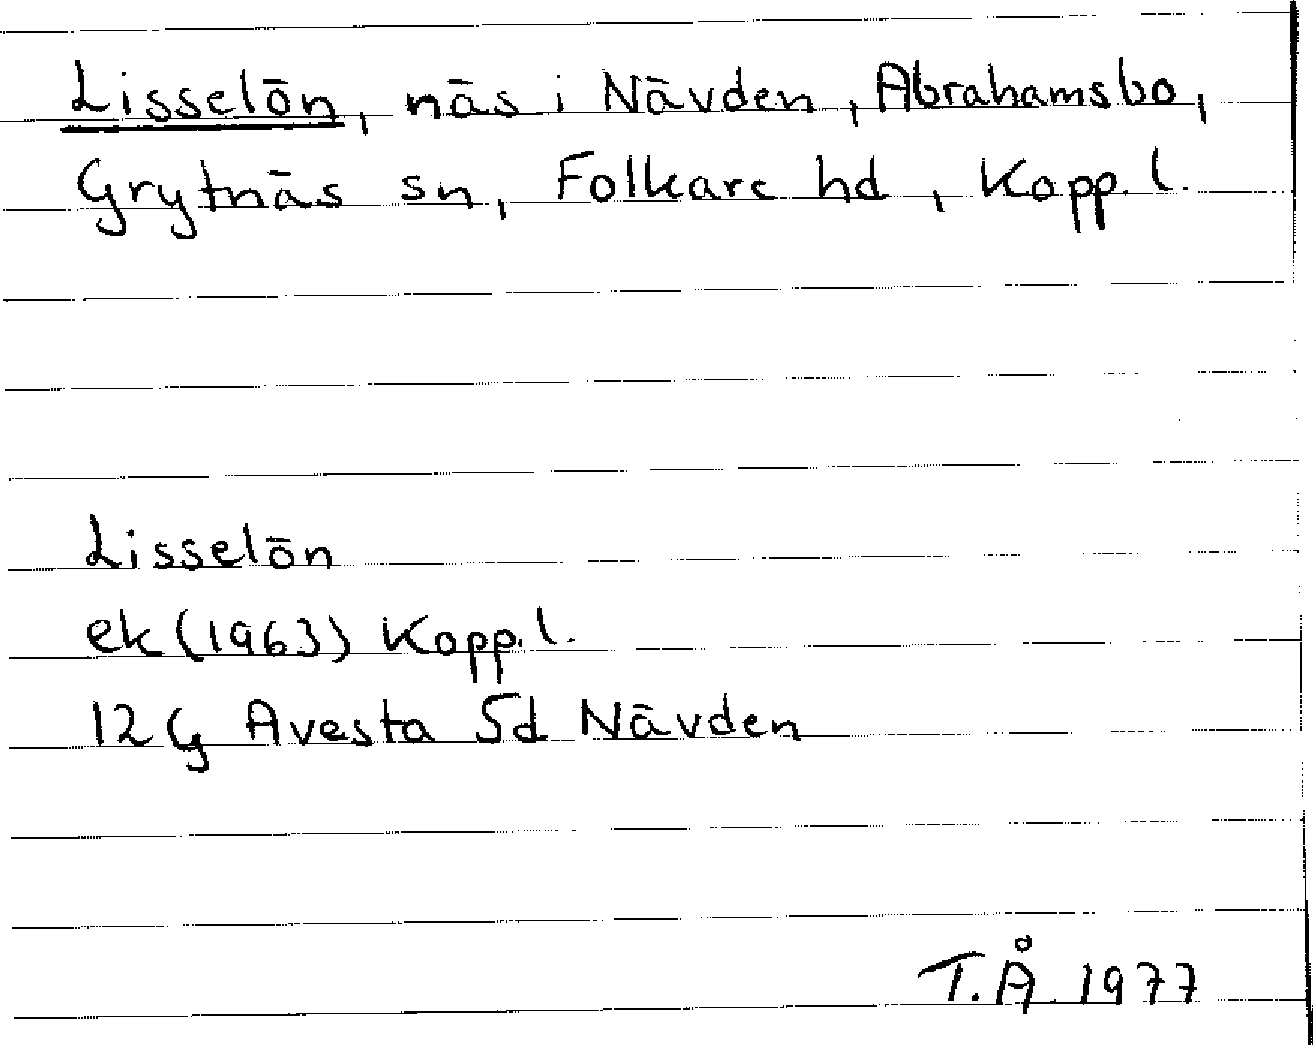 Lisselön, näs i Nävden, Abrahamsbo,
Grytnäs sn, Folkare hd, Kopp. l.
Lisselön
ek (1963) Kopp. l.
12 G Avesta 5d Nävden
T.Å. 1977